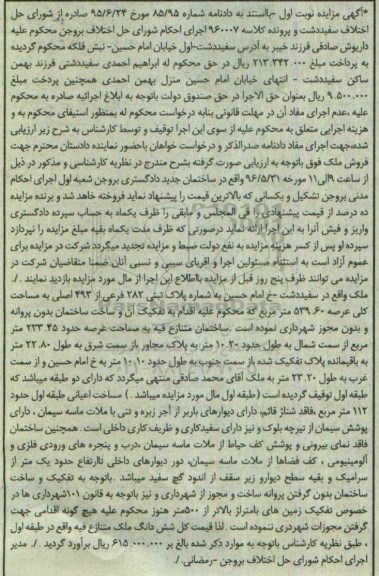 *آگهی مزایده نوبت اول -بااستند به دادنامه شماره ۸۵/۹۵ مورخ ۹۵/۶/۲۴ صادره از شورای حل
اختلاف سفیددشت و پرونده کلاسه ۹۶۰۰۰۷ اجرای احکام شورای حل اختلاف بروجن محکوم علیه
داریوش صادقی فرزند خیبر به آدرس سفیددشت-اول خیابان امام حسین- نبش فلکه محکوم گردیده
به پرداخت مبلغ ۲۱۳.۳۴۲.۰۰۰ ریال در حق محکوم له ابراهیم احمدی سفیددشتی فرزند بهمن
ساکن سفیددشت - انتهای خیابان امام حسین منزل بهمن احمدی همچنین پرداخت مبلغ
۹.۵۰۰.۰۰۰ ریال بعنوان حق الاجرا در حق صندوق دولت باتوجه به ابلاغ اجرائیه صادره به محکوم
علیه ،عدم اجرای مفاد آن در مهلت قانونی بنابه درخواست محکوم له بمنظور استیفای محکوم به و
هزینه اجرایی متعلق به محکوم علیه از سوی این اجرا توقیف و توسط کارشناس به شرح زیر ارزیابی
شده،جهت اجرای مفاد دادنامه صدرالذکر و درخواست خواهان باحضور نماینده دادستان محترم جهت
فروش ملک فوق باتوجه به ارزیابی صورت گرفته بشرح مندرج در نظریه کارشناسی و مذکور در ذیل
از ساعت ۹الی۱۱ مورخه ۹۶/۵/۳۱ واقع در ساختمان جدید دادگستری بروجن شعبه اول اجرای احکام
مدنی بروجن تشکیل و یکسانی که بالاترین قیمت را پیشنهاد نماید فروخته خاهد شد و برنده مزایده
ده درصد از قیمت پیشنهادی را فی المجلس و مابقی را ظرف یکماه به حساب سپرده دادگستری
واریز و فیش آنرا به این اجرا ارائه نماید درصورتی که ظرف مدت یکماه بقیه مبلغ مزایده را نپردازد
سپرده او پس از کسر هزینه مزایده به نفع دولت ضبط و مزایده تجدید میگردد شرکت در مزایده برای
عموم آزاد است به استثنام مسئولین اجرا و اقربای سببی و نسبی آنان ضمنا متقاضیان شرکت در
مزایده می توانند ظرف پنج روز قبل از مزایده بااطلاع این اجرا از مال مورد مزایده بازدید نمایند ./.
ملک واقع در سفیددشت -خ امام حسین به شماره پلاک ثبتی ۲۸۲ فرعی از ۴۹۳ اصلی به مساحت
کلی عرصه ۵۳۹.۶۰ متر مربع که محکوم علیه اقدام به تفکیک آن و ساخت ساختمان بدون پروانه
و بدون مجوز شهرداری نموده است .ساختمان متنازع فیه به مساحت عرصه حدود ۲۳۳.۴۵ متر
مربع از سمت شمال به طول حدود ۱۰.۲۰ متر به پلاک مجاور ،از سمت شرق به طول ۲۲.۸۰ متر
به باقیمانده پلاک تفکیک شده ،از سمت جنوب به طول حدود ۱۰.۱۰ متر به خ امام حسین و از سمت
غرب به طول ۲۳.۲۰ متر به ملک آقای محمد صادقی منتهی میگردد که دارای دو طبقه میباشد که
طبقه اول توقیف گردیده است (طبقه اول مال مورد مزایده میباشد . ) مساحت اعیانی طبقه اول حدود
۱۱۲ متر مربع ،فاقد شناژ قائم، دارای دیوارهای باربر از آجر زبره و تنی با ملات ماسه سیمان ، دارای
پوشش سیمان از تیرچه بلوک و نیز دارای سفیدکاری و ظریف کاری داخلی است . همچنین ساختمان
فاقد نمای بیرونی و پوشش کف حیاط از ملات ماسه سیمان ،درب و پنجره های ورودی فلزی و
آلومینیومی ، کف فضاها از ملات ماسه سیمان، دور دیوارهای داخلی تاارتفاع حدود یک متر از
سرامیک و بقیه سطح دیوارو زیر سقف از اندود گچ سفید میباشد .باتوجه به تفکیک و ساخت
ساختمان بدون گرفتن پروانه ساخت و مجوز از شهرداری و نیز باتوجه به قانون ۱۰۱شهرداری ها در
خصوص تفکیک زمین های بامتراژ بالاتر از ۵۰۰متر هنوز محکوم علیه هیچ گونه اقدامی جهت
گرفتن مجوزات شهرداری ننموده است .لذا قیمت کل شش دانگ ملک متنازع فیه واقع در طبقه اول
، طبق نظریه کارشناس باتوجه به موارد ذکر شده بالغ بر ۶۱۵.۰۰۰.۰۰۰ ریال برآورد گردید ./. مدیر
اجرای احکام شورای حل اختلاف بروجن -رمضانی./.